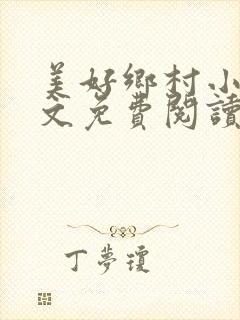 美好鄉村小
文免費閱讀
丁夢瓊